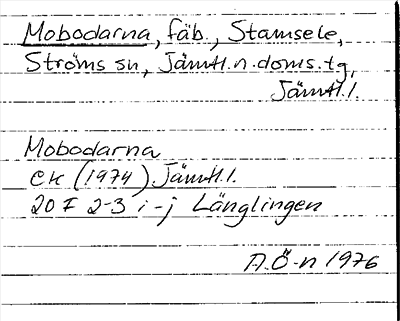 Mobodarna, fäb., Stamsele,
Ströms sn, Jämtl. n. doms. tg,
Jämtl. l.
Mobodarna
ek (1974) Jämtl. l.
20 F 2-3 i-j Länglingen
A.Ö-n 1976